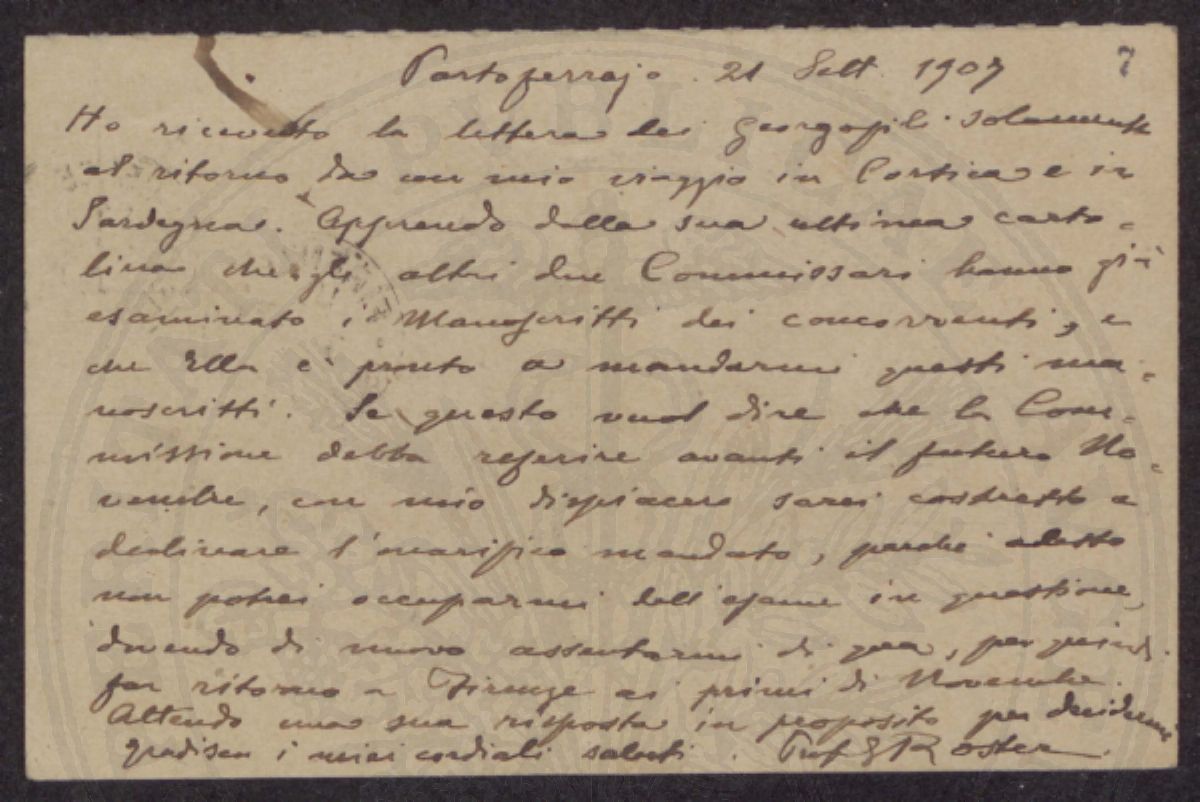 7
Portoferrajo. 21 Sett. 1907
Ho ricevuto la lettera dei Georgofili solamente
al ritorno da un mio viaggio in Corsica e in
Sardegna. Apprendo dalla sua ultima carto-
lina che gli altri due Commissari hanno già
esaminato i Manoscritti dei concorrenti, e
che Ella è pronto a mandarmi questi ma-
noscritti. Se questo vuol dire che la Com-
missione debba referire avanti il futuro No-
vembre, con mio dispiacere sarei costretto a
declinare l'onorifico mandato, perchè adesso
non potrei occuparmi dell'esame in questione,
dovendo di nuovo assentarmi di qua, per quindi
far ritorno a Firenze ai primi di Novembre.
Attendo una sua risposta in proposito per decidermi
gradisca i miei cordiali saluti. Prof G Roster.